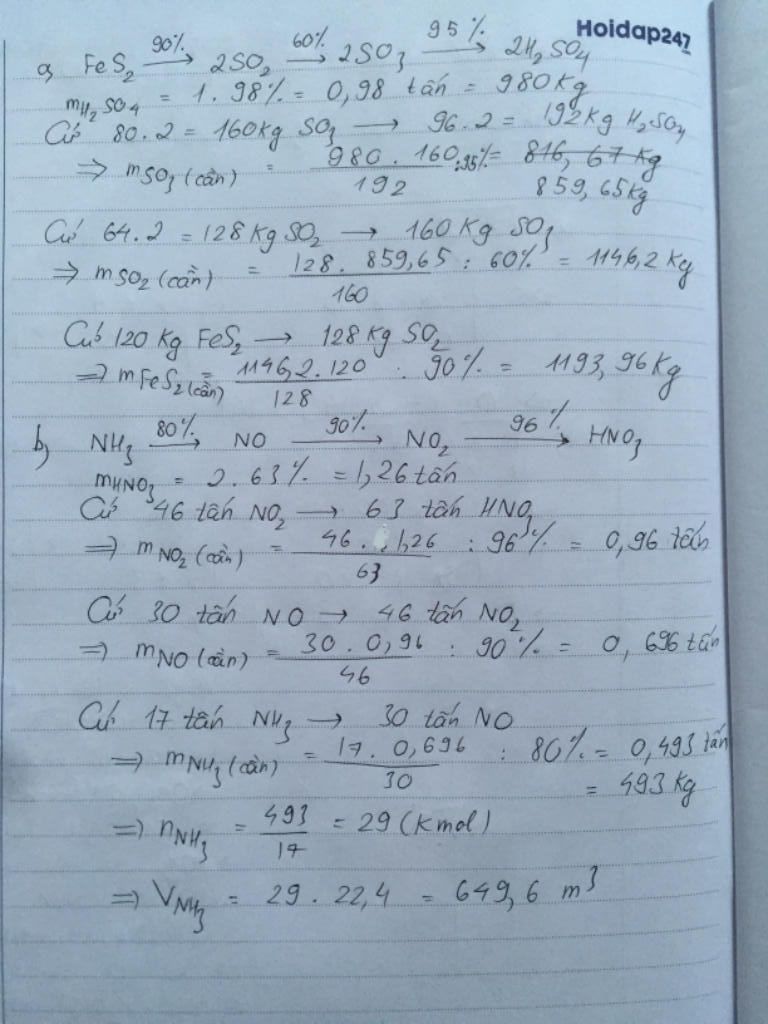 Hoidap247
a, FeS2 90%→ 2SO2 60%→ 2SO3 95%→ 2H2SO4
mH2SO4 = 1.98% = 0,98 tấn = 980Kg
Cứ 80.2 = 160kg SO3 → 96.2 = 192kg H2SO4
⇒ mSO3 (cần) = 980.160/192 : 95% = 816,67 Kg
859,65kg
Cứ 64.2 = 128Kg SO2 → 160 Kg SO3
⇒ mSO2 (cần) = 128.859,65/160 : 60% = 1146,2 Kg
Cứ 120 Kg FeS2 → 128 Kg SO2
⇒ mFeS2 (cần) = 1146,2.120/128 : 90% = 1193,96 Kg
b, NH3 80%→ NO 90%→ NO2 96%→ HNO3
mHNO3 = 2.63% = 1,26 tấn
Cứ 46 tấn NO2 → 63 tấn HNO3
⇒ mNO2 (cần) = 46.1,26/63 : 96% = 0,96 tấn
Cứ 30 tấn NO → 46 tấn NO2
⇒ mNO (cần) = 30.0,96/46 : 90% = 0,696 tấn
Cứ 17 tấn NH3 → 30 tấn NO
⇒ mNH3 (cần) = 17.0,696/30 : 80% = 0,493 tấn
= 493 Kg
⇒ nNH3 = 493/17 = 29 (Kmol)
⇒ VNH3 = 29.22,4 = 649,6 m³